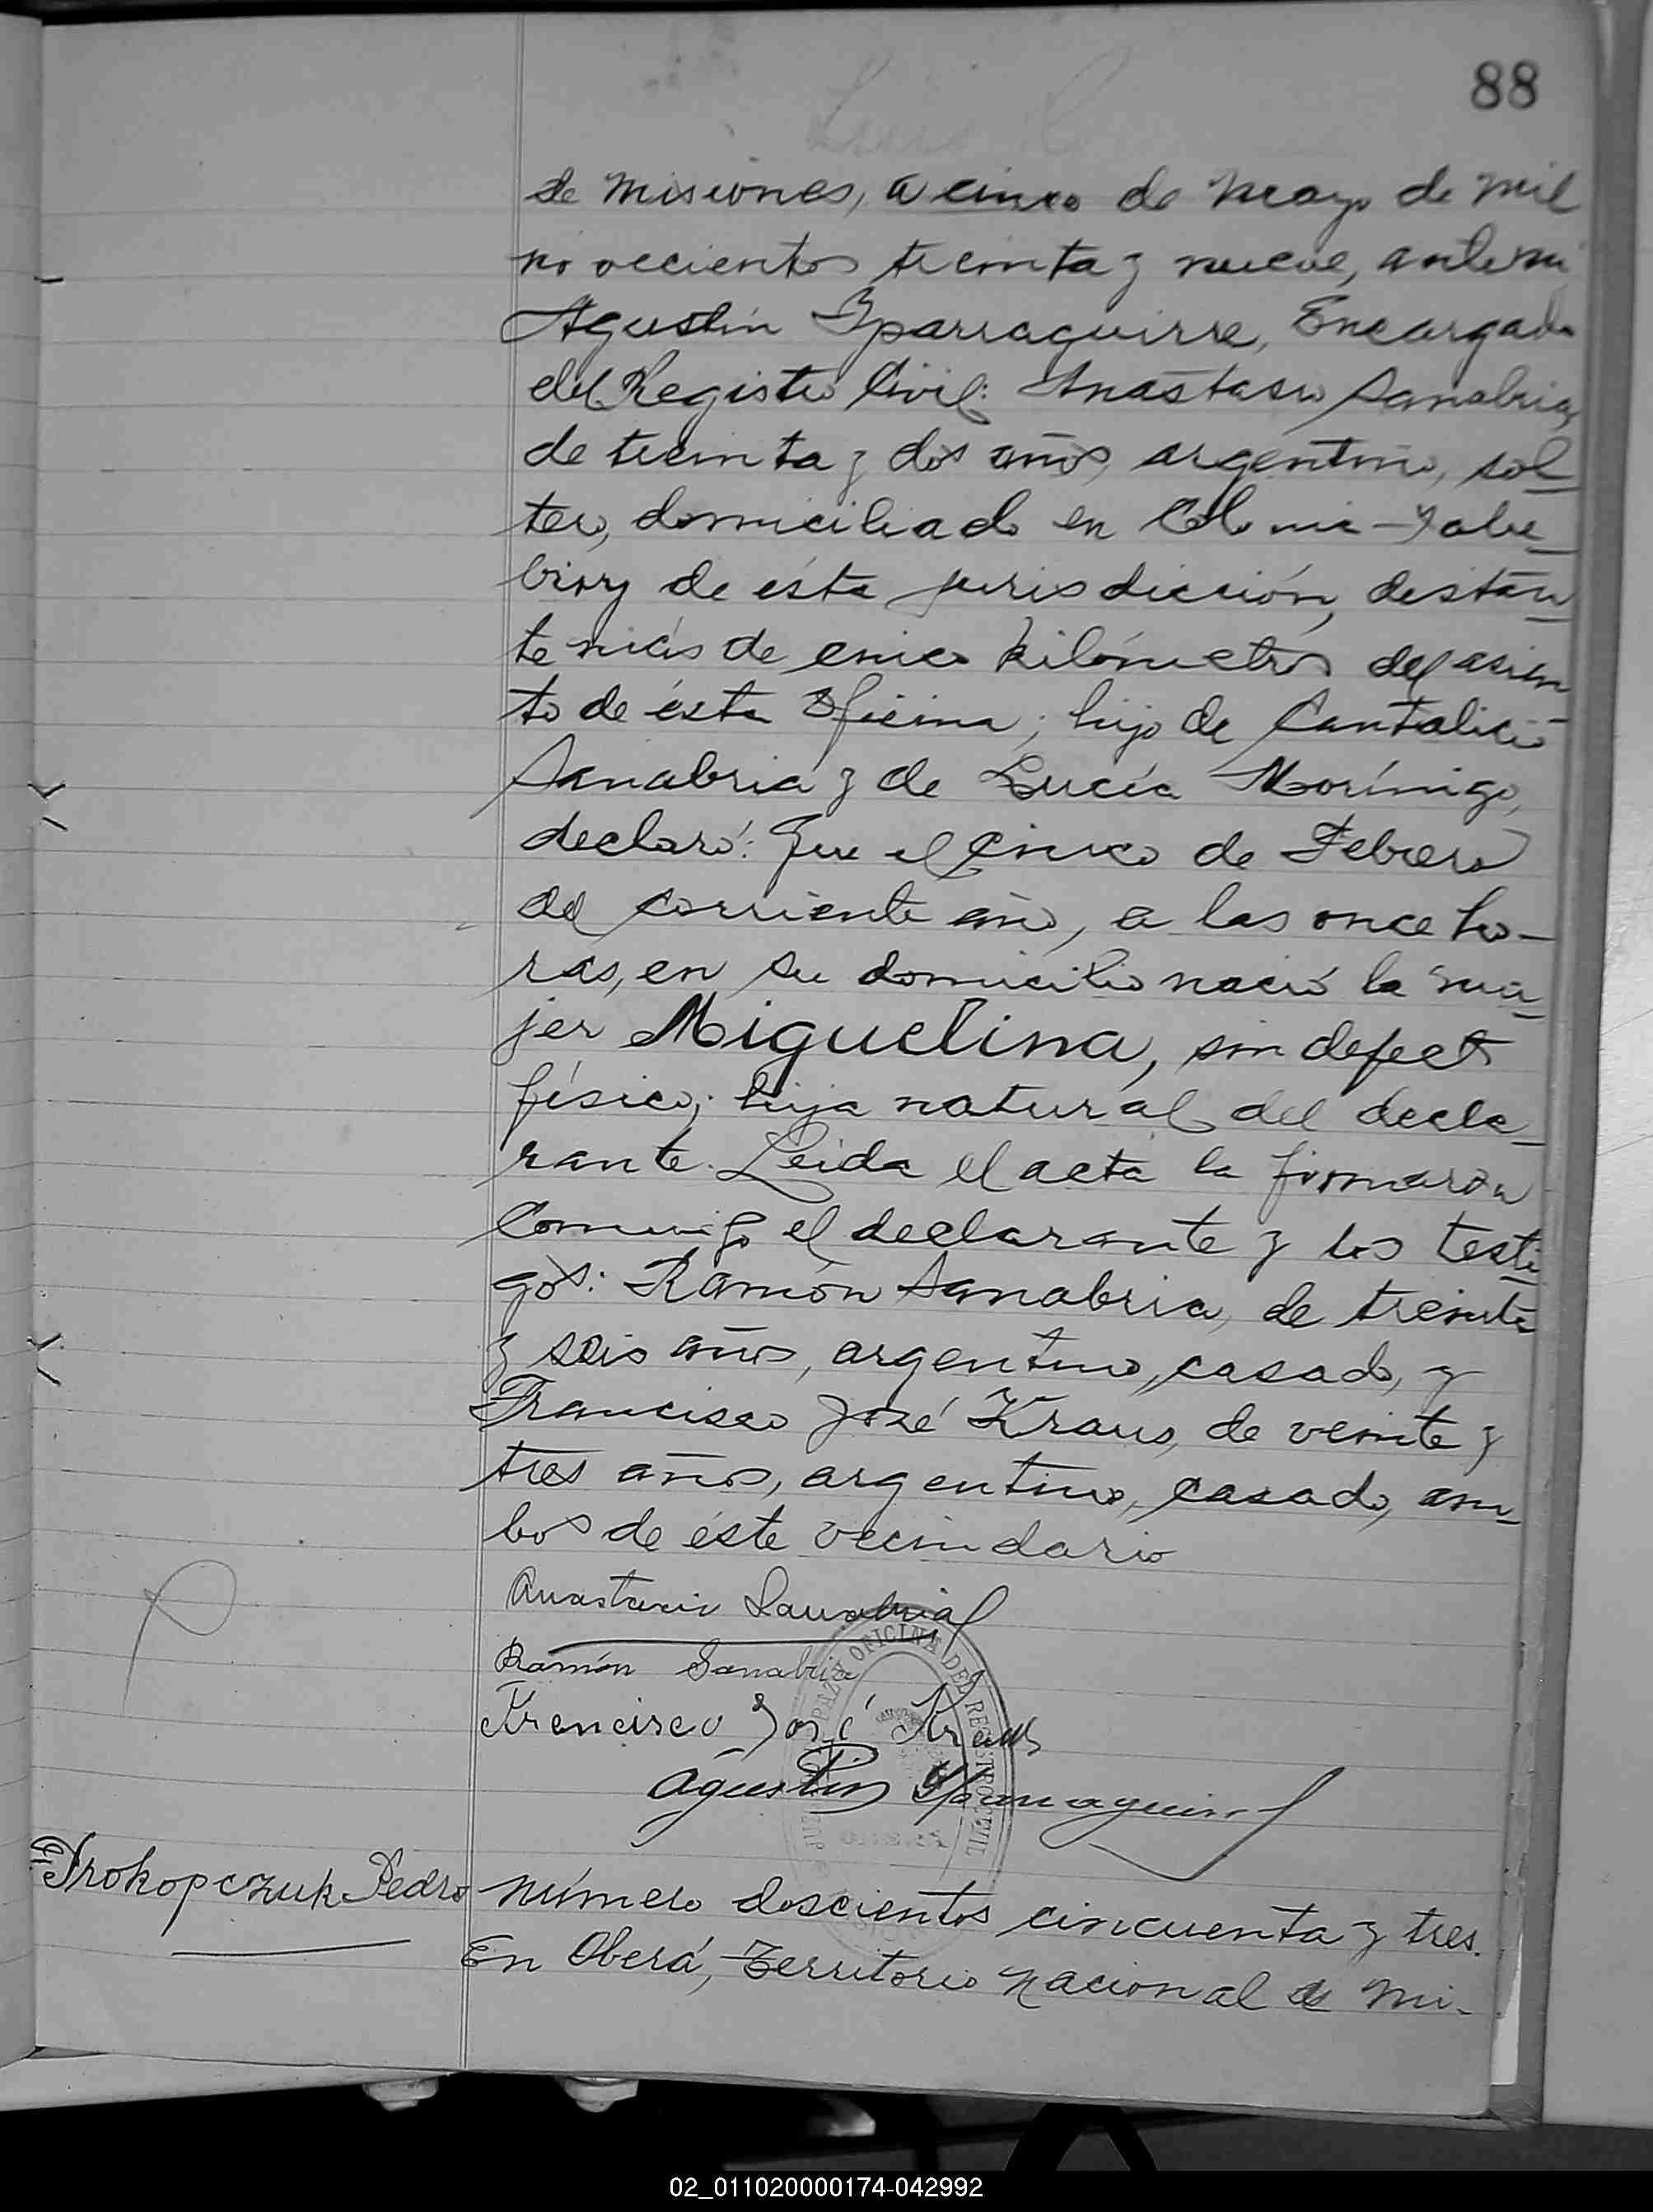 88
de Misiones, a cinco de Mayo de mil
novecientos treinta y nueve, ante mi
Agustín Yparraguirre, Encargado
del Registro Civil: Anastasio Sanabria,
de treinta y dos años, argentino, sol-
tero, domiciliado en Colonia-Yabe-
biry de ésta jurisdicción, distan-
te más de cinco kilómetros del asien-
to de ésta Oficina; hijo de Cantalicio
Sanabria y de Lucía Morínigo,
declaró: Que el cinco de Febrero
del corriente año, a las once ho-
ras, en su domicilio nació la mu-
jer Miguelina, sin defecto
físico; hija natural del decla-
rante. Leida el acta la firmaron
conmigo el declarante y los testi-
gos: Ramón Sanabria, de treinta
y seis años, argentino, casado, y
Francisco José Kraus, de veinte y
tres años, argentino, casado, am-
bos de éste vecindario
Anastacio Sanabria
Ramón Sanabria
Francisco José Kraus
Agustin Yparraguirre
OFICINA DEL REGISTRO CIVIL
Prokopczuk Pedro
Número doscientos cincuenta y tres.
En Oberá, Territorio Nacional de Mi-
02_011020000174-042992